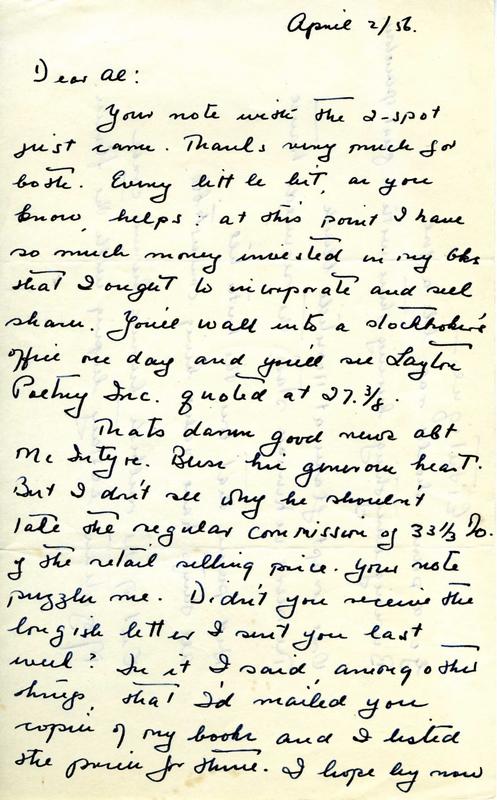 April 2/56.
Dear Al:
Your note with the 2-spot
just came. Thanks very much for
both. Every little bit, as you
know, helps: at this point I have
so much money invested in my bks
that I ought to incorporate and sell
shares. You'll walk into a stockbroker's
office one day and you'll see Layton
Poetry Inc. quoted at 27.3/8.
Thats damn good news abt
McIntyre. Bless his generous heart.
But I don't see why he shouldn't
take the regular commission of 33 1/3 %.
of the retail selling price. Your note
puzzles me. Didn't you receive the
longish letter I sent you last
week? In it I said, among other
things, that I'd mailed you
copies of my books and I listed
the prices for them. I hope by now